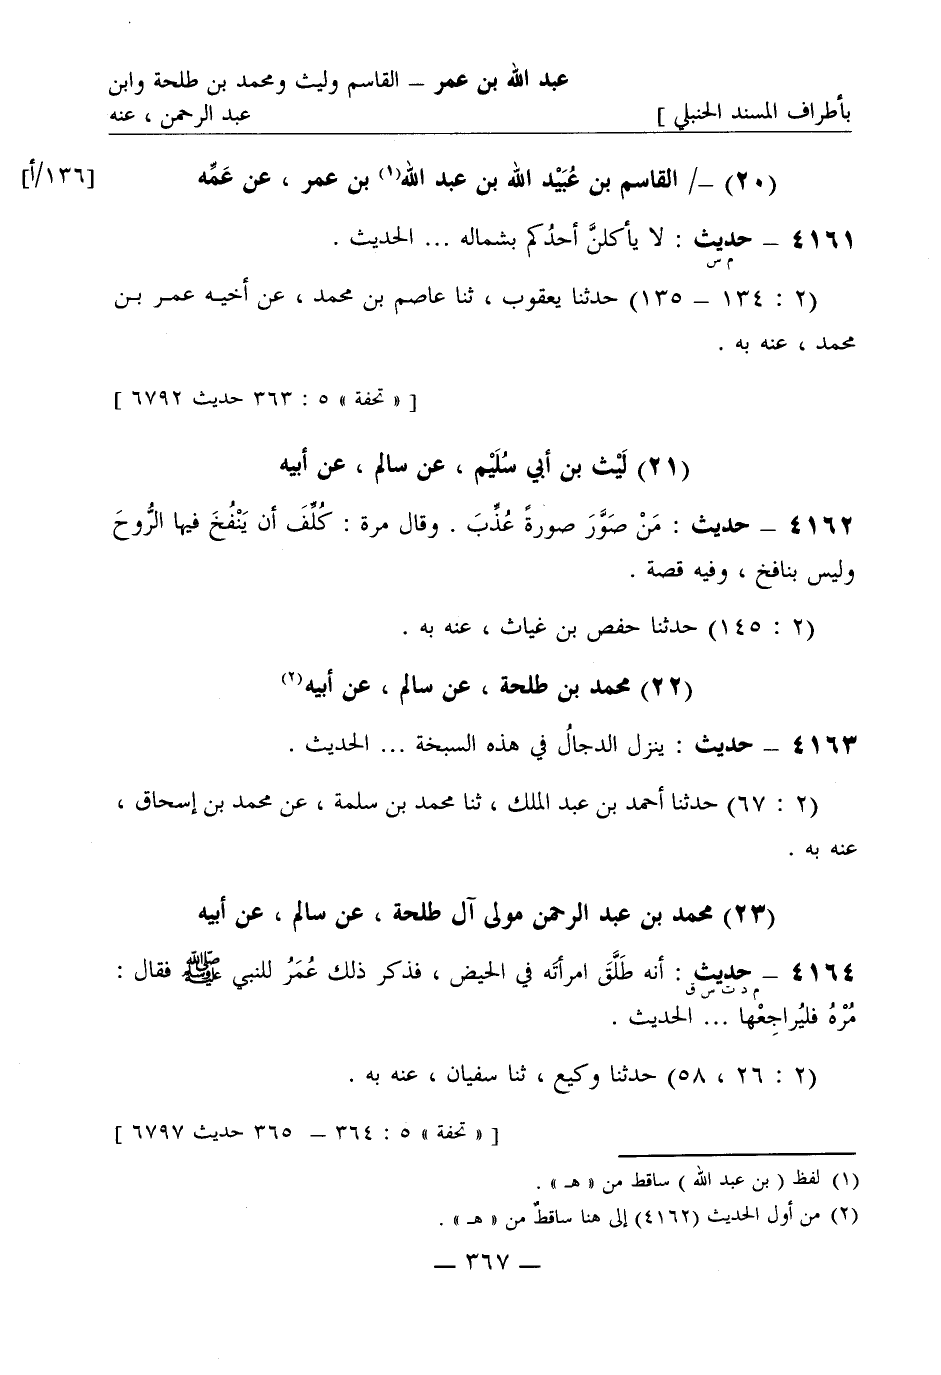 عبد الله بن عمر – القاسم وليث ومحمد بن طلحة وابن
بأطراف المسند الحنبلي ] عبد الرحمن ، عنه
(٢٠) –/ القاسم بن عُبَيْد الله بن عبد الله(١) بن عمر ، عن عَمِّه [١٣٦/أ]
٤١٦١ – حديث : لا يأكلنَّ أحدُكم بشماله ... الحديث .
م س
(٢ : ١٣٤ – ١٣٥) حدثنا يعقوب ، ثنا عاصم بن محمد ، عن أخيه عمر بن
محمد ، عنه به .
[ « تحفة » ٥ : ٣٦٣ حديث ٦٧٩٢ ]
(٢١) لَيْث بن أبي سُلَيْم ، عن سالم ، عن أبيه
٤١٦٢ – حديث : مَنْ صَوَّرَ صورةً عُذِّبَ . وقال مرة : كُلِّفَ أن يَنْفُخَ فيها الرُّوحَ
وليس بنافخ ، وفيه قصة .
(٢ : ١٤٥) حدثنا حفص بن غياث ، عنه به .
(٢٢) محمد بن طلحة ، عن سالم ، عن أبيه(٢)
٤١٦٣ – حديث : ينزل الدجالُ في هذه السبخة ... الحديث .
(٢ : ٦٧) حدثنا أحمد بن عبد الملك ، ثنا محمد بن سلمة ، عن محمد بن إسحاق ،
عنه به .
(٢٣) محمد بن عبد الرحمن مولى آل طلحة ، عن سالم ، عن أبيه
٤١٦٤ – حديث : أنه طَلَّقَ امرأتَه في الحيض ، فذكر ذلك عُمَرُ للنبي ﷺ فقال :
م د ت س ق
مُرْهُ فليُراجِعْها ... الحديث .
(٢ : ٢٦ ، ٥٨) حدثنا وكيع ، ثنا سفيان ، عنه به .
[ « تحفة » ٥ : ٣٦٤ – ٣٦٥ حديث ٦٧٩٧ ]
(١) لفظ ( بن عبد الله ) ساقط من « هـ » .
(٢) من أول الحديث (٤١٦٢) إلى هنا ساقطٌ من « هـ » .
– ٣٦٧ –